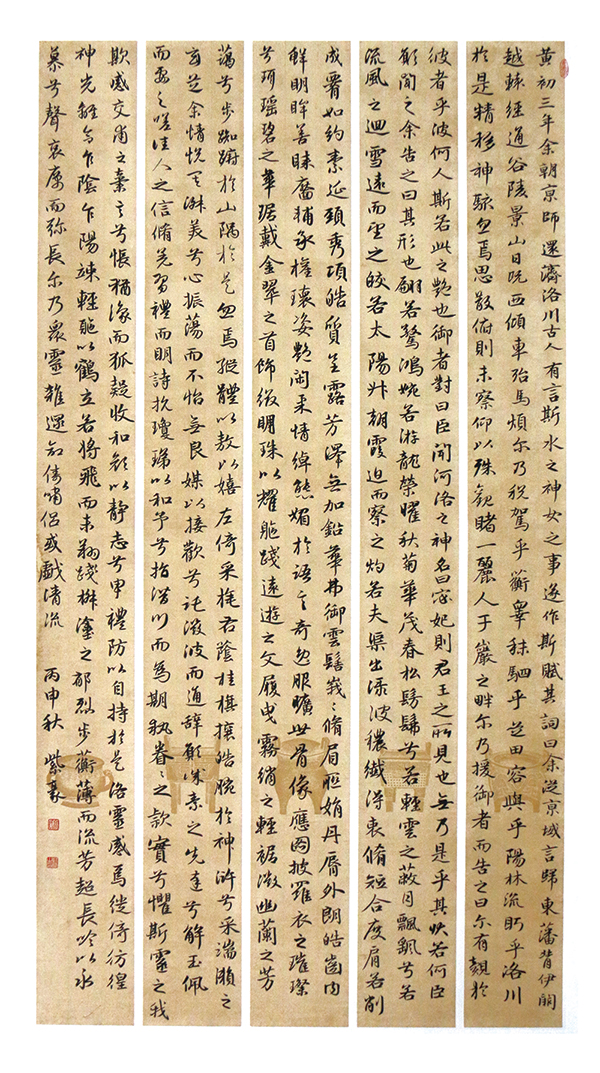 黄初三年余朝京師還濟洛川古人有言斯水之神女之事遂作斯賦其詞曰余從京域言歸東藩背伊闕
越轘經通谷陵景山日既西傾車殆馬煩尔乃税駕乎蘅皋秣駟乎芝田容與乎陽林流眄乎洛川
於是精移神駭忽焉思散俯則未察仰以殊觀睹一麗人于巖之畔尔乃援御者而告之曰尔有覿於
彼者乎彼何人斯若此之艷也御者對曰臣聞河洛之神名曰宓妃則君王之所見也無乃是乎其狀若何臣
願聞之余告之曰其形也翩若驚鴻婉若游龍榮曜秋菊華茂春松髣髴兮若輕雲之蔽月飄颻兮若
流風之迴雪遠而望之皎若太陽升朝霞迫而察之灼若夫渠出渌波穠纖得衷脩短合度肩若削
成署如約素延頸秀項皓質呈露芳澤無加鉛華弗御雲髻峩峩脩眉聯娟丹脣外朗皓齒内
鮮明眸善睞靨輔承權瓌姿艷閑柔情綽態媚於語言奇服曠世骨像應圖披羅衣之璀璨
兮珥瑶碧之華琚戴金翠之首飾綴明珠以耀軀踐遠遊之文履曳霧綃之輕裾微幽蘭之芳
藹兮步踟躕於山隅於是忽焉縱體以敖以嬉左倚采旄右蔭桂旗攘皓腕於神滸兮采湍瀨之
玄芝余情悦其淑美兮心振蕩而不怡無良媒以接歡兮託微波而通辭願誠素之先達兮解玉佩
而要之嗟佳人之信脩羌習禮而明詩抗瓊珶以和予兮指潛川而為期執眷眷之款實兮懼斯靈之我
欺感交甫之棄言兮悵猶豫而狐疑收和顔以靜志兮申禮防以自持於是洛靈感焉徙倚彷徨
神光離合乍陰乍陽竦輕軀以鶴立若將飛而未翔踐椒塗之郁烈步蘅薄而流芳超長吟以永
慕兮聲哀厲而弥長尔乃衆靈雜遝命儔嘯侣或戲清流 丙申秋 紫豪